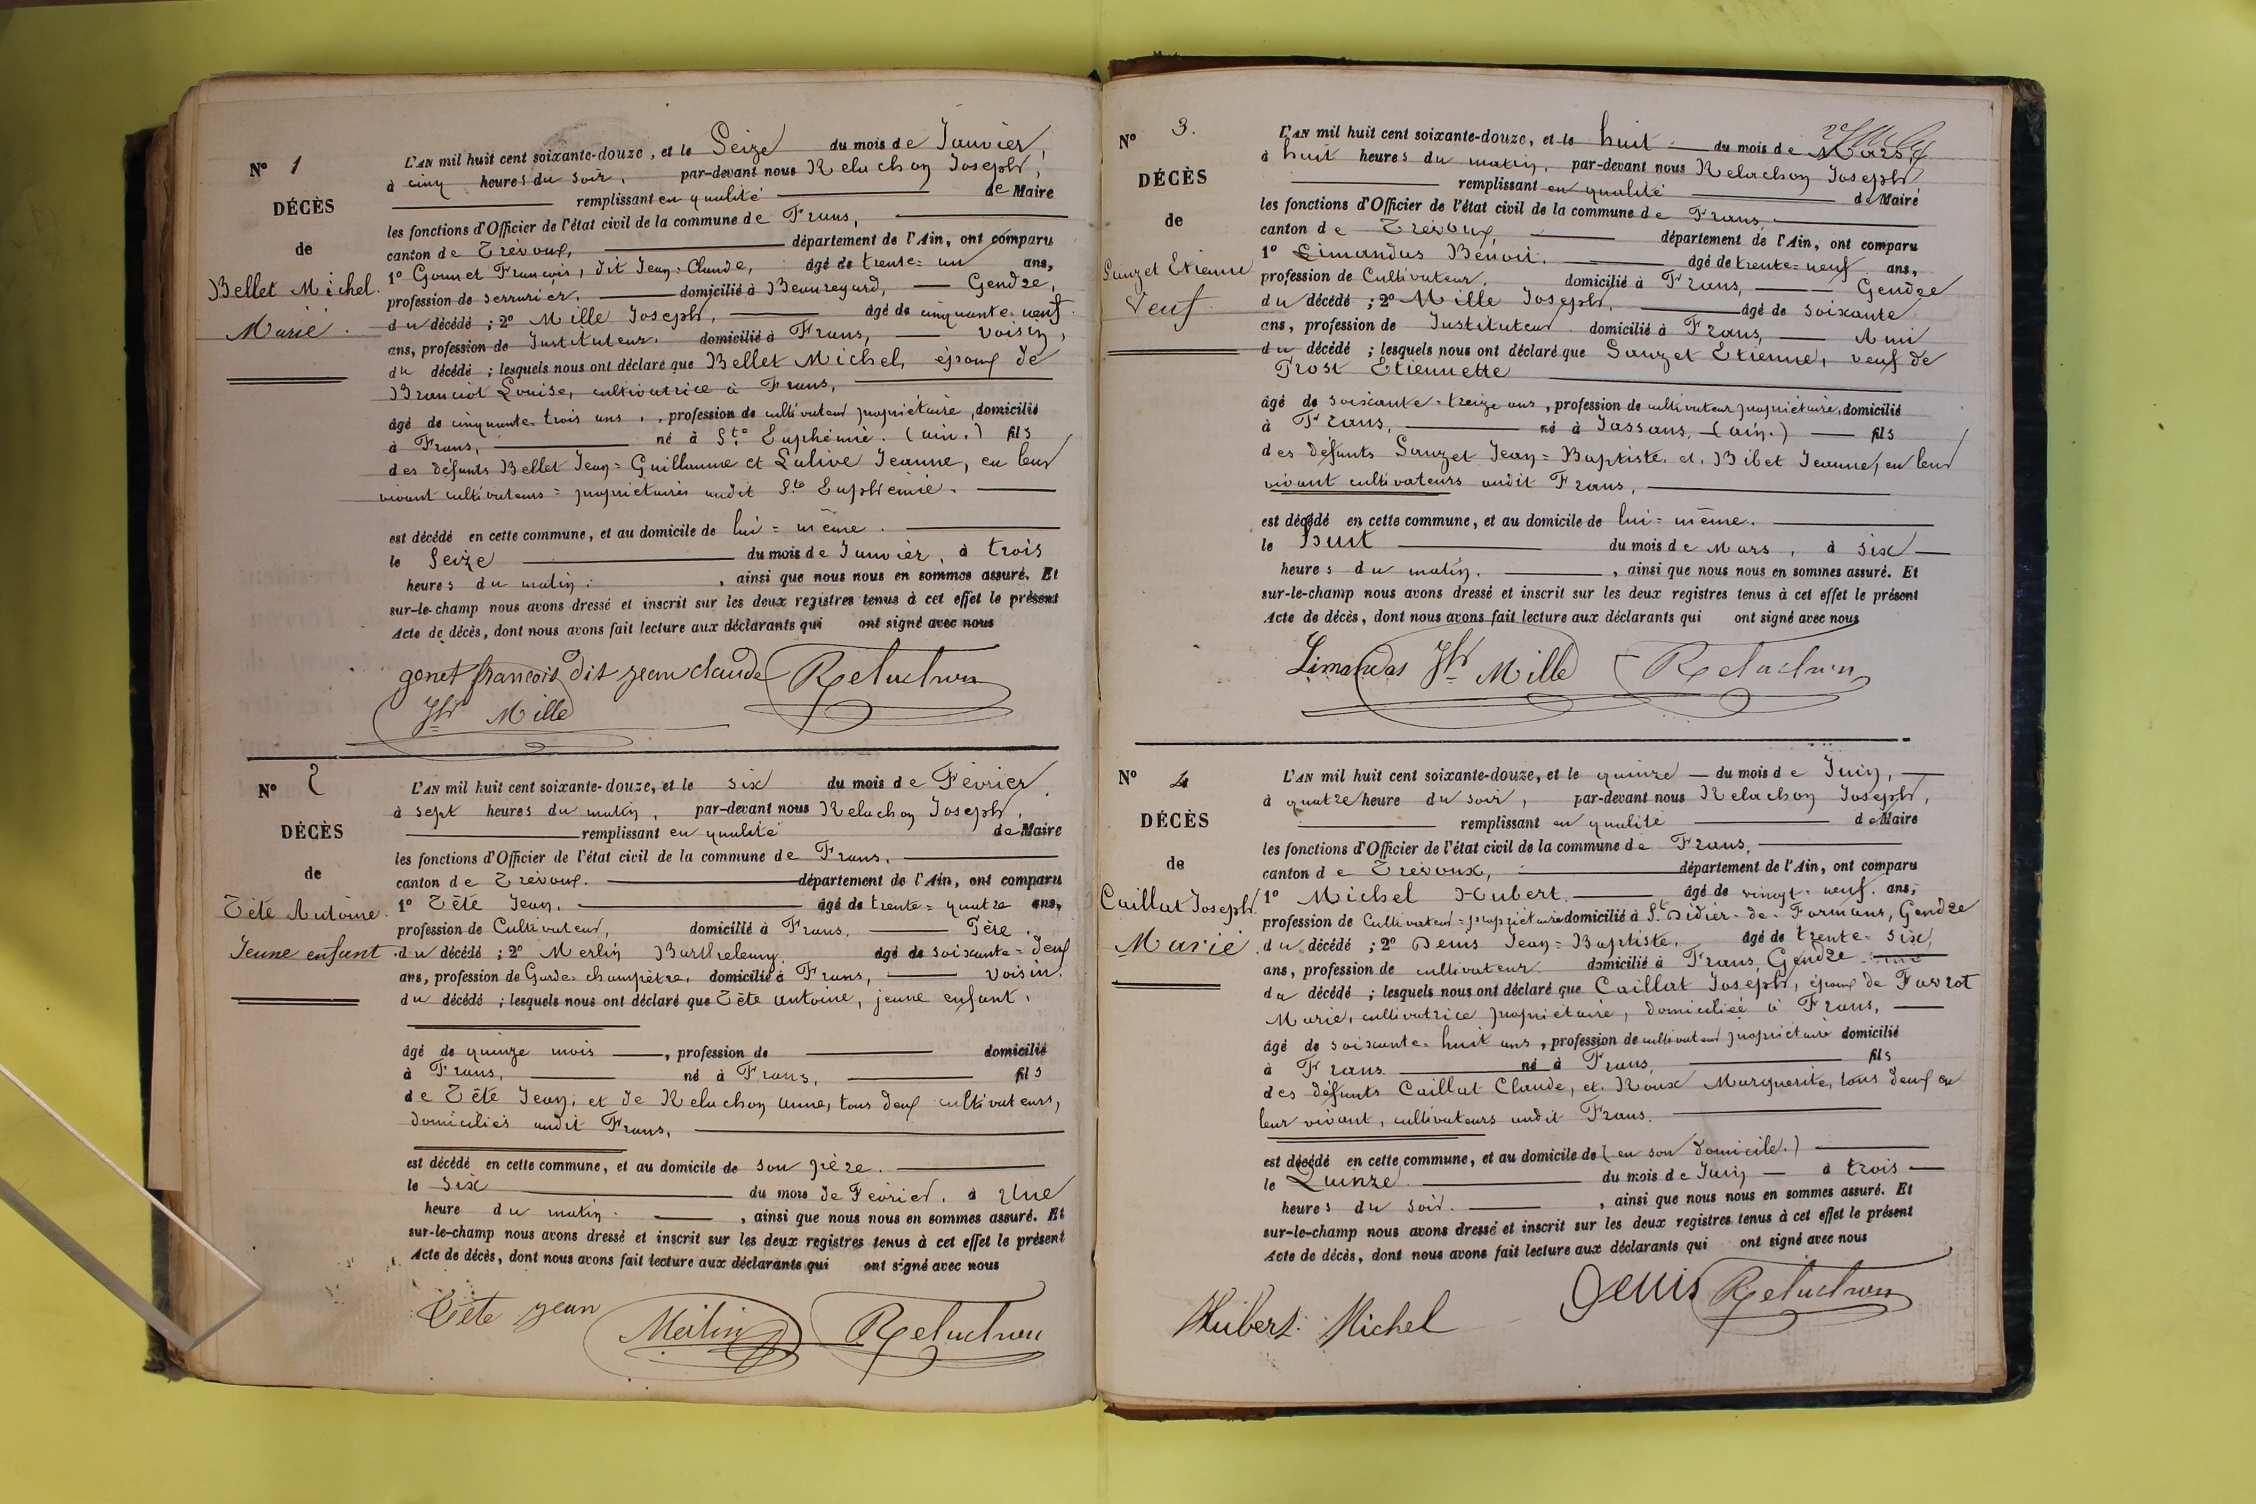 N° 1
DÉCÈS
de
Bellet Michel.
Marié.
L'AN mil huit cent soixante-douze, et le Seize du mois de Janvier,
à cinq heures du soir, par-devant nous Relachon Joseph,
remplissant en qualité de Maire
les fonctions d'Officier de l'état civil de la commune de Frans,
canton de Trévoux, département de l'Ain, ont comparu
1° Gounet François, dit Jean-Claude, âgé de trente-un ans,
profession de serrurier, domicilié à Beauregard, Gendre,
du décédé ; 2° Mille Joseph, âgé de cinquante-neuf
ans, profession de Instituteur. domicilié à Frans, voisin,
du décédé ; lesquels nous ont déclaré que Bellet Michel, époux de
Louise, cultivatrice à Frans,
âgé de cinquante-trois ans, profession de cultivateur propriétaire, domicilié
à Frans, né à Ste Euphémie. (ain.) fils
des défunts Bellet Jean=Guillaume et Lalive Jeanne, en leur
vivant cultivateurs=propriétaires audit Ste Euphémie.
est décédé en cette commune, et au domicile de lui=même.
le Seize du mois de Janvier, à trois
heures du matin. , ainsi que nous nous en sommes assuré. Et
sur-le-champ nous avons dressé et inscrit sur les deux registres tenus à cet effet le présent
Acte de décès, dont nous avons fait lecture aux déclarants qui ont signé avec nous
gonet françois dit jean claude Relachon
Jh Mille
N° 2
DÉCÈS
de
Tête Antoine.
Jeune enfant.
L'AN mil huit cent soixante-douze, et le six du mois de Février,
à sept heures du matin, par-devant nous Relachon Joseph,
remplissant en qualité de Maire
les fonctions d'Officier de l'état civil de la commune de Frans,
canton de Trévoux. département de l'Ain, ont comparu
1° Tête Jean, âgé de trente=quatre ans,
profession de Cultivateur, domicilié à Frans. Père.
du décédé ; 2° Merlin Barthelemy. âgé de soixante=deux
ans, profession de Garde-champêtre, domicilié à Frans, voisin.
du décédé ; lesquels nous ont déclaré que Tête antoine, jeune enfant.
âgé de quinze mois , profession de domicilié
à Frans, né à Frans, fils
de Tête Jean, et de Relachon anne, tous deux cultivateurs,
domiciliés audit Frans,
est décédé en cette commune, et au domicile de son père.
le six du mois de Février. à une
heure du matin. , ainsi que nous nous en sommes assuré. Et
sur-le-champ nous avons dressé et inscrit sur les deux registres tenus à cet effet le présent
Acte de décès, dont nous avons fait lecture aux déclarants qui ont signé avec nous
Tête jean Merlin Relachon
N° 3.
DÉCÈS
de
Sauzet Etienne
Veuf
L'AN mil huit cent soixante-douze, et le huit du mois de Mars,
à huit heures du matin, par-devant nous Relachon Joseph
remplissant en qualité de Maire
les fonctions d'Officier de l'état civil de la commune de Frans,
canton de Trévoux, département de l'Ain, ont comparu
1° Limandas Benoit. âgé de trente=neuf ans,
profession de Cultivateur. domicilié à Frans, Gendre
du décédé ; 2° Mille Joseph, âgé de soixante
ans, profession de Instituteur. domicilié à Frans, Ami
du décédé ; lesquels nous ont déclaré que Sauzet Etienne, veuf de
Prost Etiennette
âgé de soixante-treize ans, profession de cultivateur propriétaire, domicilié
à Frans, né à Jassans, (ain.) fils
des défunts Sauzet Jean=Baptiste. et Bibet Jeanne, en leur
vivant cultivateurs audit Frans,
est décédé en cette commune, et au domicile de lui=même.
le Huit du mois de Mars, à six
heures du matin. , ainsi que nous nous en sommes assuré. Et
sur-le-champ nous avons dressé et inscrit sur les deux registres tenus à cet effet le présent
Acte de décès, dont nous avons fait lecture aux déclarants qui ont signé avec nous
Limandas Jh Mille Relachon
N° 4
DÉCÈS
de
Caillat Joseph.
Marié.
L'AN mil huit cent soixante-douze, et le quinze du mois de Juin,
à quatre heure du soir, par-devant nous Relachon Joseph,
remplissant en qualité de Maire
les fonctions d'Officier de l'état civil de la commune de Frans,
canton de Trévoux, département de l'Ain, ont comparu
1° Michel Hubert. âgé de vingt-neuf. ans,
profession de Cultivateur=propriétaire domicilié à St Didier-de-Formans, Gendre
du décédé ; 2° Denis Jean=Baptiste. âgé de trente-six,
ans, profession de cultivateur domicilié à Frans, Gendre
du décédé ; lesquels nous ont déclaré que Caillat Joseph, époux de Farrot
Marie, cultivatrice propriétaire, domiciliée à Frans,
âgé de soixante-huit ans, profession de cultivateur propriétaire domicilié
à Frans né à Frans, fils
des défunts Caillat Claude, et Roux Marguerite, tous deux en
leur vivant, cultivateurs audit Frans.
est décédé en cette commune, et au domicile de (en son domicile.)
le Quinze du mois de Juin à trois
heures du soir. , ainsi que nous nous en sommes assuré. Et
sur-le-champ nous avons dressé et inscrit sur les deux registres tenus à cet effet le présent
Acte de décès, dont nous avons fait lecture aux déclarants qui ont signé avec nous
Hubert Michel Denis Relachon